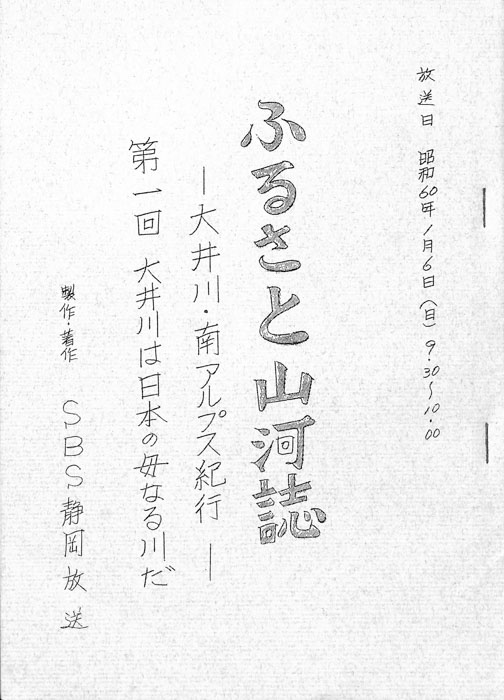 放送日 昭和60年1月6日(日)9.30〜10.00
ふるさと山河誌
―大井川・南アルプス紀行―
第一回 大井川は日本の母なる川だ
製作・著作 SBS静岡放送